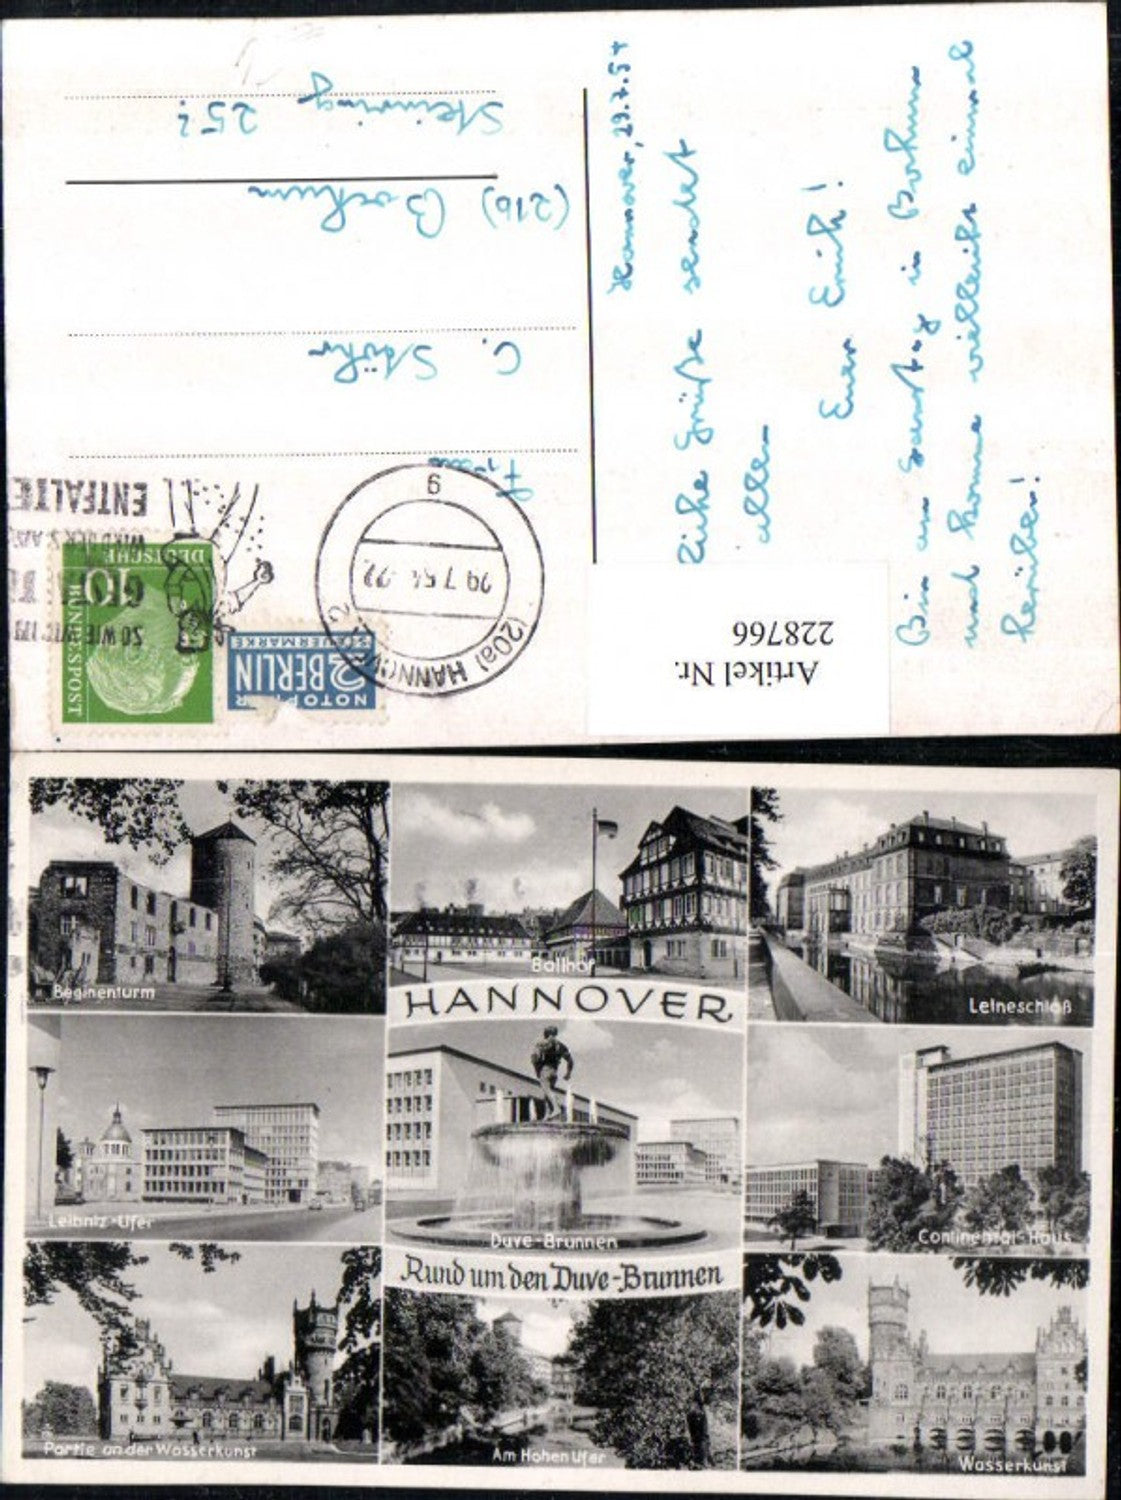 Hannover, 29.7.54
Liebe Grüße sendet
allen
Euer Erich!
Bin am Samstag in Bochum
und komme vielleicht einmal
herüber!
Frau
C. Stöhr
(21b) Bochum
Steinring 25?
(20a) HANNOVER 2
29.7.54-22
g
SO WIE WIR
ENTFALTE
DEUTSCHE
BUNDESPOST
10
NOTOPFER
2 BERLIN
STEUERMARKE
Artikel Nr.
228766
Beginenturm
Ballhof
Leineschloß
HANNOVER
Leibniz-Ufer
Duve-Brunnen
Continental-Haus
Rund um den Duve-Brunnen
Partie an der Wasserkunst
Am Hohen Ufer
Wasserkunst